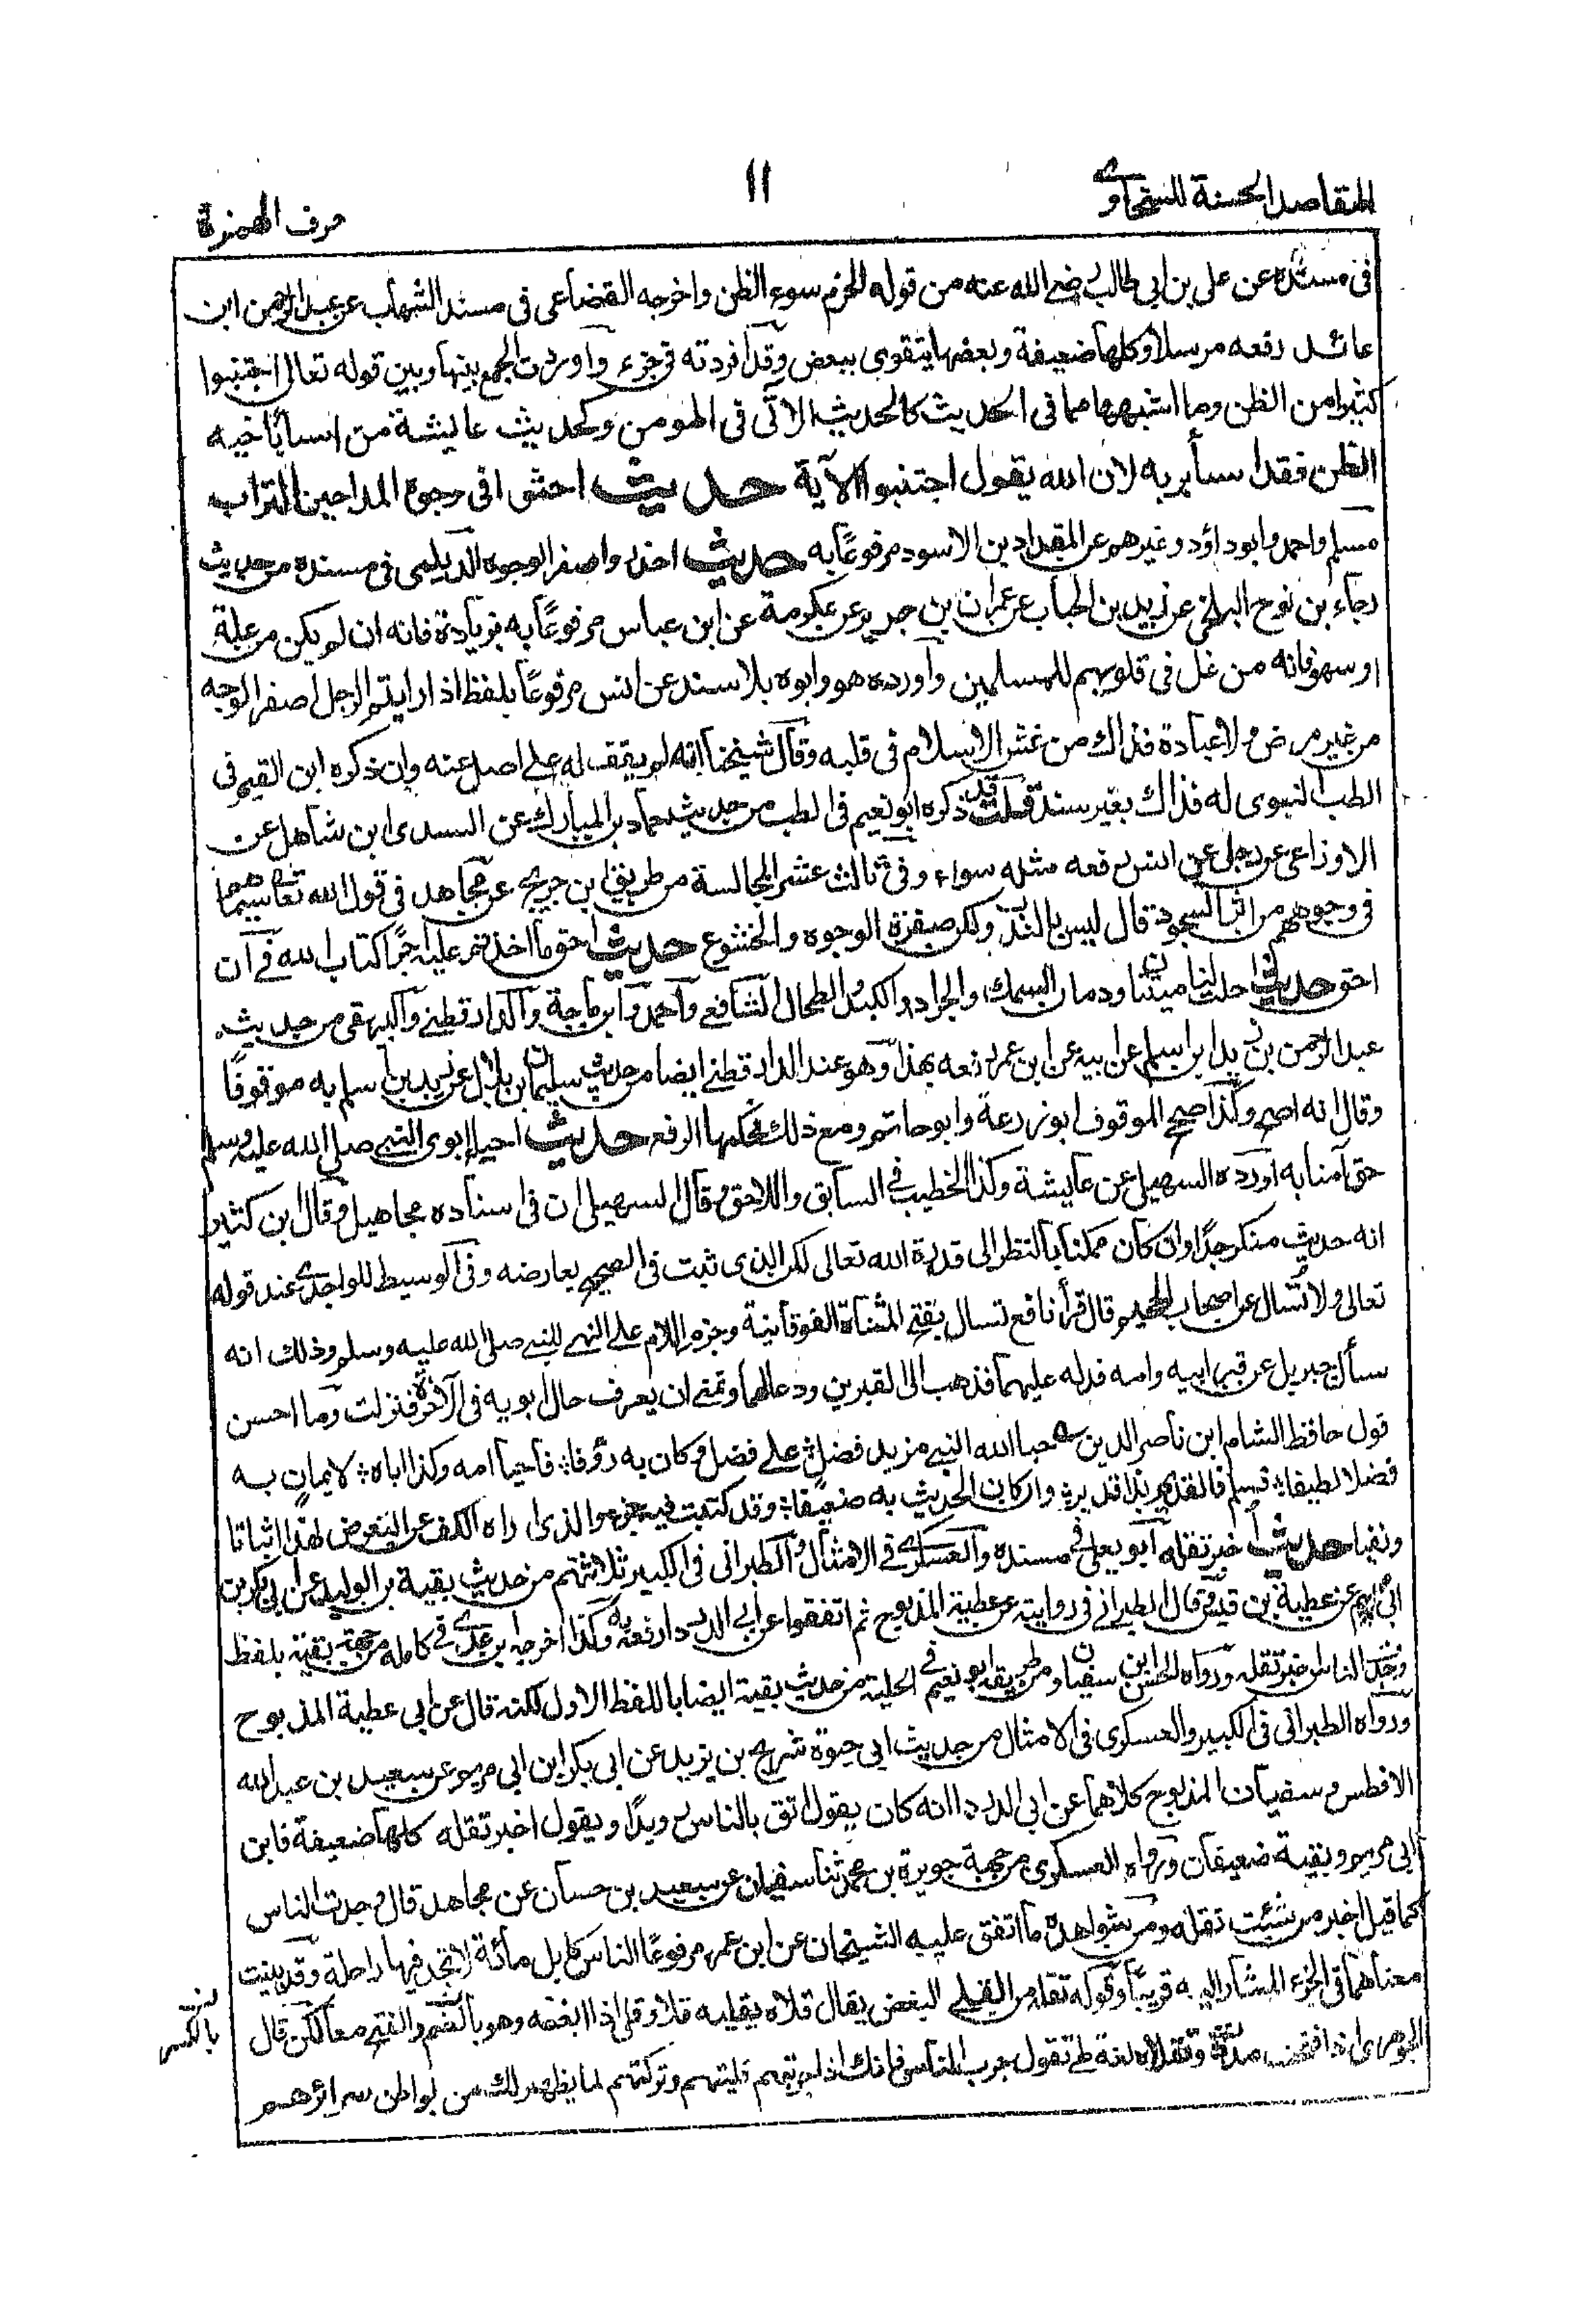 المقاصد الحسنة للسخاوى
١١
حرف الهمزة
فى مسنده عن على بن ابى طالب رضى الله عنه من قوله الحزم سوء الظن واخرجه القضاعى فى مسند الشهاب عن عبد الرحمن ابن
عائذ رفعه مرسلا وكلها ضعيفة وبعضها يتقوى ببعض وقد افردته فى جزء واوردت الجمع بينها وبين قوله تعالى اجتنبوا
كثيرا من الظن وما اشبهها مما فى الحديث كالحديث الآتى فى المؤمن وكحديث عايشة من اساء باخيه
الظن فقد اساء بربه لان الله يقول اجتنبوا الآية حديث احثوا فى وجوه المداحين التراب
مسلم واحمد وابوداؤد وغيرهم عن المقداد بن الاسود مرفوعًا به حديث احذروا صفر الوجوه الديلمى فى مسنده من حديث
رجاء بن نوح البلخى عن زيد بن الحباب عن عمران بن جرير عن عكرمة عن ابن عباس مرفوعًا به بزيادة فانه ان لم يكن من علة
او سهر فانه من غل فى قلوبهم للمسلمين واورده هو وابوه بلا سند عن انس مرفوعًا بلفظ اذا رايتم الرجل اصفر الوجه
من غير مرض ولا عبادة فذاك من غش الاسلام فى قلبه وقال شيخنا انه لم يقف له على اصل عنه وان ذكره ابن القيم فى
الطب النبوى له فذاك بغير سند قلت قد ذكره ابو نعيم فى الطب من حديث حماد بن المبارك عن السدى ابن شاهل عن
الاوزاعى عن رجل عن انس رفعه مثله سواء وفى ثالث عشر المجالسة من طريق ابن جريج عن مجاهد فى قول الله تعالى سيماهم
فى وجوههم من اثر السجود قال ليس بالندب ولكن صفرة الوجوه والخشوع حديث احق ما اخذتم عليه اجرًا كتاب الله فى ان
احق حديث احلت لنا ميتتان ودمان السمك والجراد والكبد والطحال الشافعى واحمد وابن ماجة والدارقطنى والبيهقى من حديث
عبد الرحمن بن زيد بن اسلم عن ابيه عن ابن عمر رفعه بهذا وهو عند الدارقطنى ايضا من حديث سليمان بن بلال عن زيد بن اسلم به موقوفًا
وقال انه اصح وكذا صحح الموقوف ابو زرعة وابو حاتم ومع ذلك فحكمها الرفع حديث احياء ابوى النبى صلى الله عليه وسلم
حتى آمنا به اورده السهيلى عن عايشة وكذا الخطيب فى السابق واللاحق وقال السهيلى ان فى اسناده مجاهيل وقال ابن كثير
انه حديث منكر جدًا وان كان ممكنا بالنظر الى قدرة الله تعالى لكن الذى ثبت فى الصحيح يعارضه وفى الوسيط للواحدى عند قوله
تعالى ولا تسأل عن اصحاب الجحيم قال قرأ نافع تسال بفتح المثناة الفوقانية وجزم اللام على النهى للنبى صلى الله عليه وسلم وذلك انه
سأل جبريل عن قبر ابيه وامه فدله عليهما فذهب الى القبرين ودعا لهما وتمنى ان يعرف حال ابويه فى الآخرة فنزلت وما احسن
قول حافظ الشام ابن ناصر الدين حبا الله النبى مزيد فضل على فضل وكان به رؤفا فاحيا امه وكذا اباه لايمان به
فضلا لطيفا فسلم فالقديم بذا قدير وان كان الحديث به ضعيفا وقد كتبت فيه جزء والذى اراه الكف عن التعرض لهذا اثباتا
ونفيا حديث اخبر تقله ابو يعلى فى مسنده والعسكرى فى الامثال والطبرانى فى الكبير ثلاثتهم من حديث بقية بن الوليد عن ابى بكر بن
ابى مريم عن عطية بن قيس وقال الطبرانى فى روايته عن عطية المذبوح ثم اتفقوا عن ابى الدرداء رفعه به وكذا اخرجه ابن عدى فى كامله من جهة بقية بلفظ
وجدت الناس اخبر تقله ورواه الحسن ابن سفيان ومن طريقه ابو نعيم فى الحلية من حديث بقية ايضا باللفظ الاول لكنه قال عن ابى عطية المذبوح
ورواه الطبرانى فى الكبير والعسكرى فى الامثال من حديث ابى حيوة شريح بن يزيد عن ابى بكر ابن ابى مريم عن سعيد بن عبد الله
الافطس وسفيان المذبوح كلاهما عن ابى الدرداء انه كان يقول اتق بالناس رويدًا ويقول اخبر تقله كلها ضعيفة فابن
ابى مريم وبقية ضعيفان ورواه العسكرى من جهة جويرة بن محمد ثنا سفيان عن سعيد بن حسان عن مجاهد قال وجدت الناس
كما قيل اخبر من شئت تقله ومن شواهده ما اتفق عليه الشيخان عن ابن عمر مرفوعًا الناس كابل مائة لا تجد فيها راحلة وقد بينت
معناهما فى الجزء المشار اليه قريبًا وقوله تقله من القلى البغض يقال قلاه يقليه قلا وقلى اذا ابغضه وهو بالضم والفتح معا لكن قال
الجوهرى اذا فتحت مددت وتقلاه لغة طى تقول جرب الناس فانك اذا جربتهم قليتهم وتركتهم لما يظهر لك من بواطن سرائرهم
بالكسر